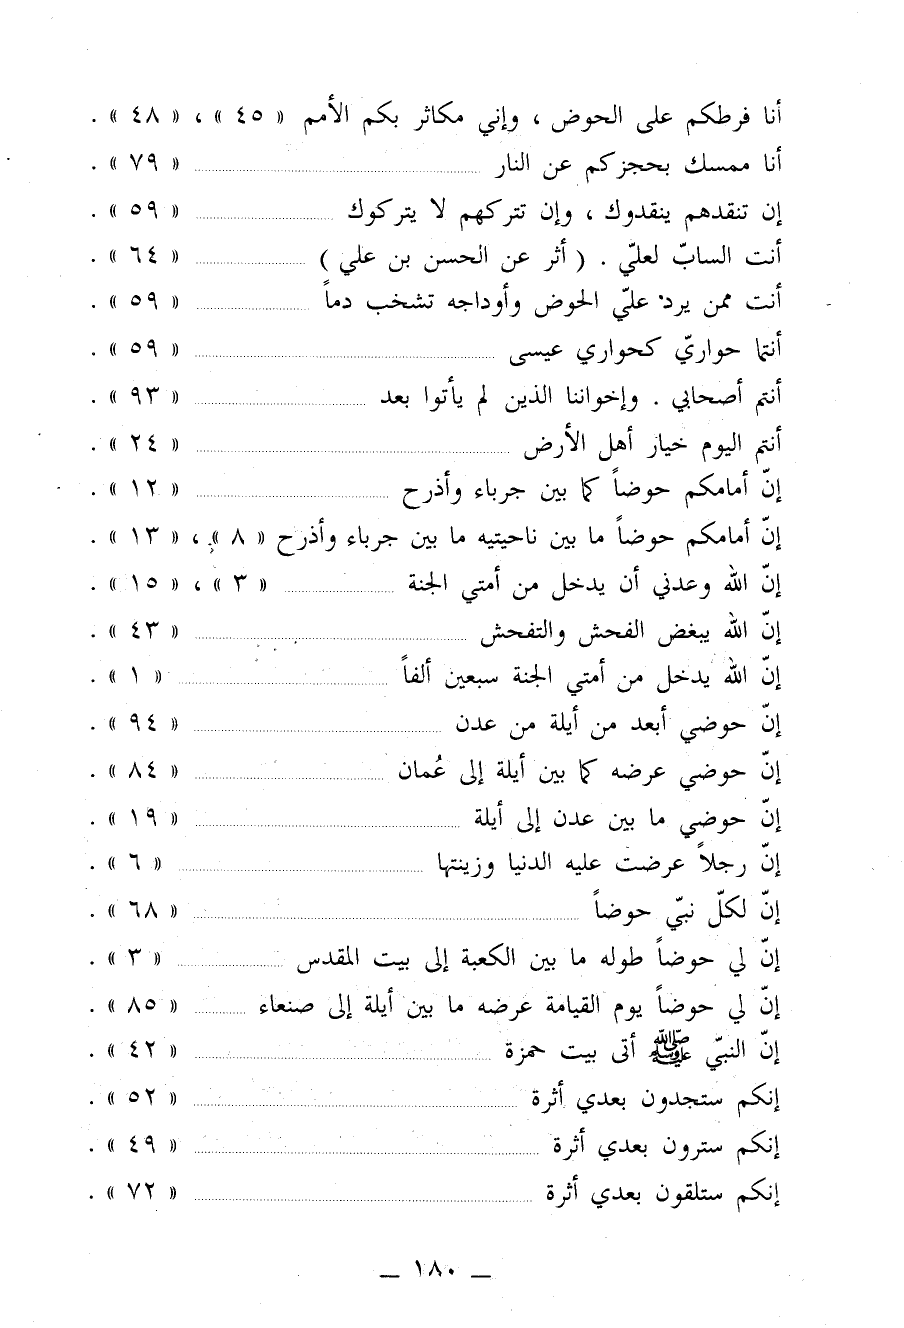 أنا فرطكم على الحوض ، وإني مكاثر بكم الأمم « ٤٥ » ، « ٤٨ » .
أنا ممسك بحجزكم عن النار « ٧٩ » .
إن تنقدهم ينقدوك ، وإن تتركهم لا يتركوك « ٥٩ » .
أنت السابّ لعليّ . ( أثر عن الحسن بن علي ) « ٦٤ » .
أنت ممن يرد عليّ الحوض وأوداجه تشخب دماً « ٥٩ » .
أنتما حواريّ كحواري عيسى « ٥٩ » .
أنتم أصحابي . وإخواننا الذين لم يأتوا بعد « ٩٣ » .
أنتم اليوم خيار أهل الأرض « ٢٤ » .
إنّ أمامكم حوضاً كما بين جرباء وأذرح « ١٢ » .
إنّ أمامكم حوضاً ما بين ناحيتيه ما بين جرباء وأذرح « ٨ » ، « ١٣ » .
إنّ الله وعدني أن يدخل من أمتي الجنة « ٣ » ، « ١٥ » .
إنّ الله يبغض الفحش والتفحش « ٤٣ » .
إنّ الله يدخل من أمتي الجنة سبعين ألفاً « ١ » .
إنّ حوضي أبعد من أيلة من عدن « ٩٤ » .
إنّ حوضي عرضه كما بين أيلة إلى عُمان « ٨٤ » .
إنّ حوضي ما بين عدن إلى أيلة « ١٩ » .
إنّ رجلاً عرضت عليه الدنيا وزينتها « ٦ » .
إنّ لكلّ نبيّ حوضاً « ٦٨ » .
إنّ لي حوضاً طوله ما بين الكعبة إلى بيت المقدس « ٣ » .
إنّ لي حوضاً يوم القيامة عرضه ما بين أيلة إلى صنعاء « ٨٥ » .
إنّ النبيّ ﷺ أتى بيت حمزة « ٤٢ » .
إنكم ستجدون بعدي أثرة « ٥٢ » .
إنكم سترون بعدي أثرة « ٤٩ » .
إنكم ستلقون بعدي أثرة « ٧٢ » .
— ١٨٠ —